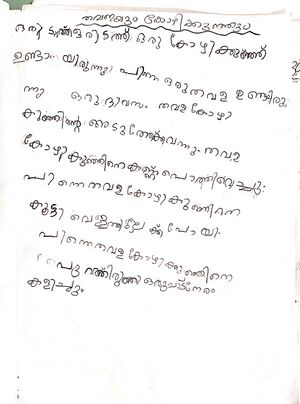 തവളയും കോഴിക്കുഞ്ഞും
ഒരു ടത്തൊരിടത്ത് ഒരു കോഴിക്കുഞ്ഞ്
ഉണ്ടായിരുന്നു പിന്നെ ഒരു തവള ഉണ്ടിരു
ന്നു ഒരു ദിവസം തവള കോഴി
കുഞ്ഞിന്റെ അടുത്തേക്ക് വന്നു. തവള
കോഴികുഞ്ഞിനെ കണ്ണ് പൊത്തിവെച്ചു.
പിന്നെ തവള കോഴികുഞ്ഞിനെ
കൂട്ടി വെള്ളത്തിലേക്ക് പോയി.
പിന്നെ തവള കോഴികുഞ്ഞിനെ
പുറത്തിരുത്തി ഒരുപാട് നേരം
കളിച്ചു.